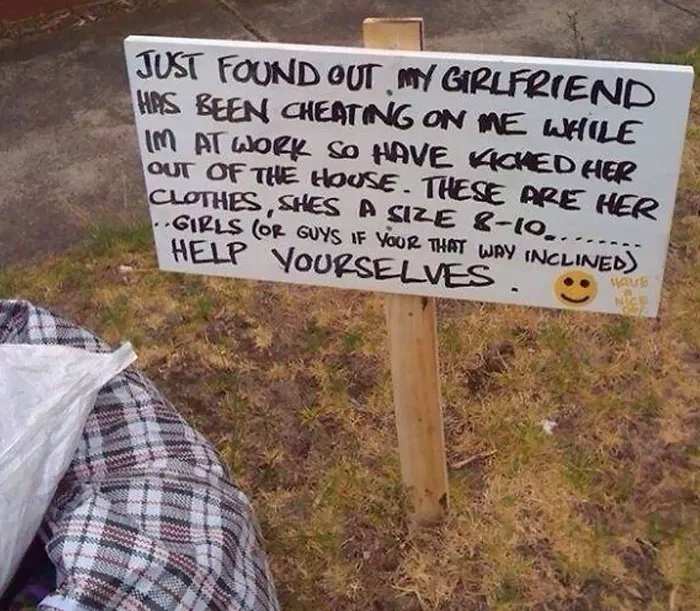 JUST FOUND OUT MY GIRLFRIEND
HAS BEEN CHEATING ON ME WHILE
IM AT WORK SO HAVE KICKED HER
OUT OF THE HOUSE. THESE ARE HER
CLOTHES, SHES A SIZE 8-10.........
..GIRLS (OR GUYS IF YOUR THAT WAY INCLINED)
HELP YOURSELVES.
HAVE
A
NICE
DAY